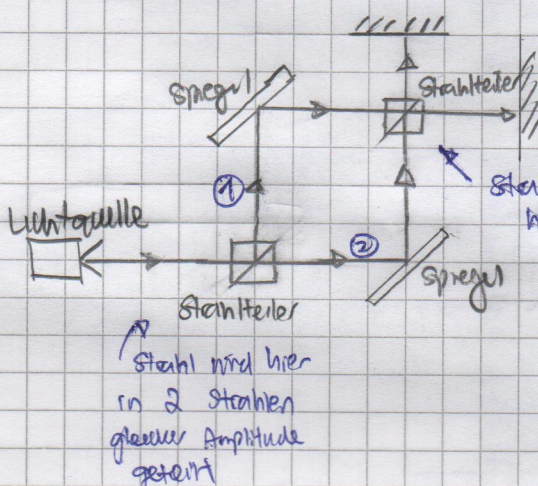 Strahlteiler
Spiegel
①
Lichtquelle
②
Spiegel
Strahlteiler
Strahl wird hier
in 2 Strahlen
gleicher Amplitude
geteilt